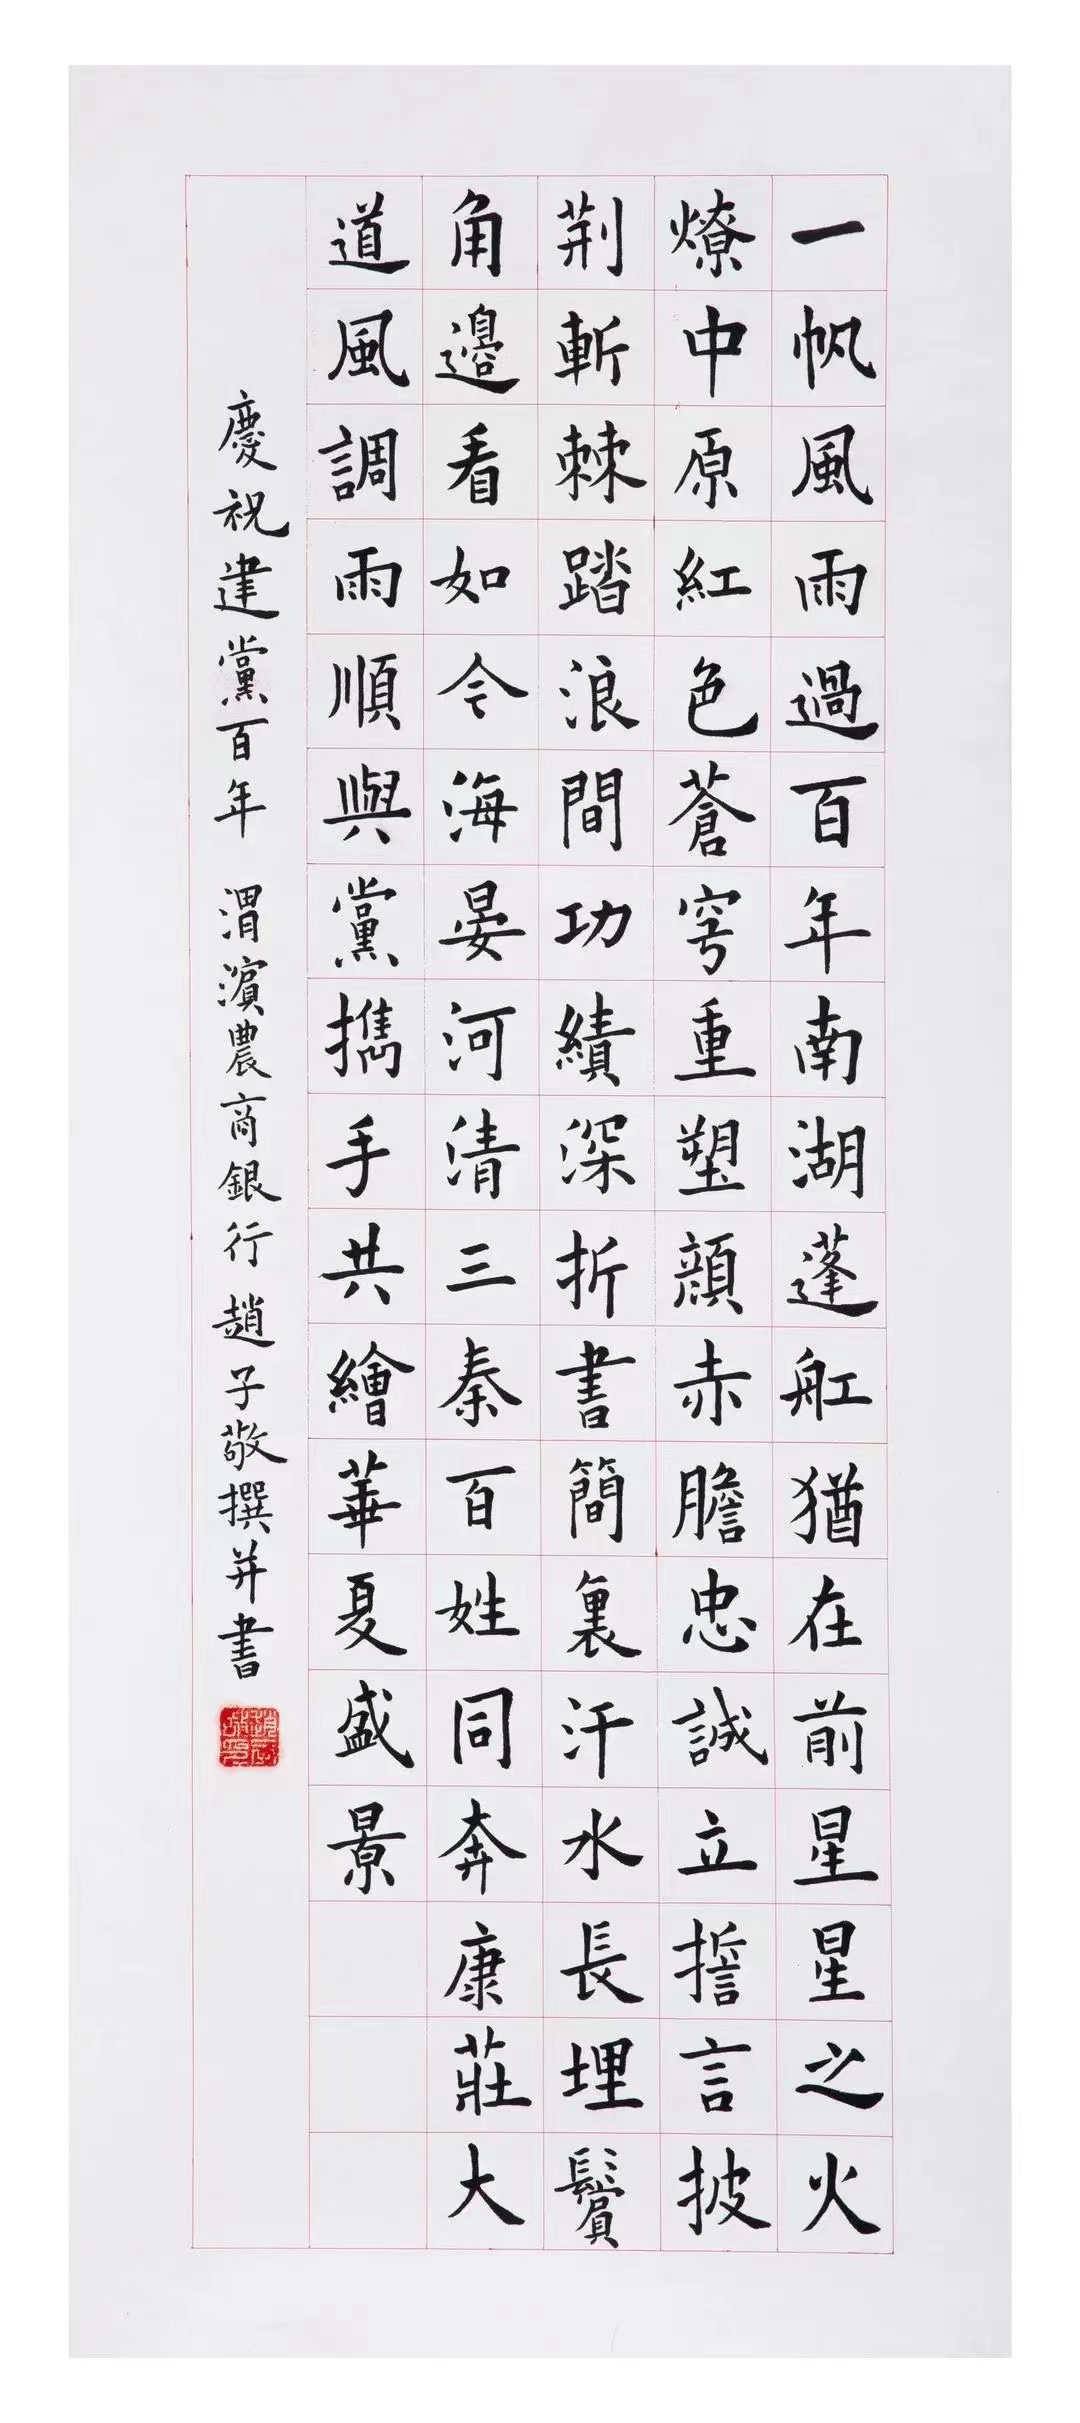 一帆風雨過百年南湖蓬舡猶在前星星之火
燎中原紅色蒼穹重塑顔赤膽忠誠立擔言披
荆斬棘踏浪間功績深折書簡裏汗水長埋鬢
角邊看如今海晏河清三秦百姓同奔康莊大
道風調雨順與黨攜手共繪華夏盛景
慶祝建黨百年 渭濱農商銀行趙子敬撰并書